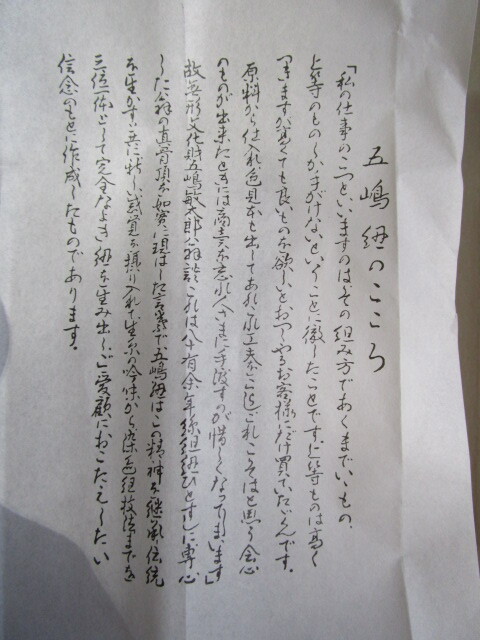 五嶋紐のこころ
「私の仕事の二つといいますのは、その組み方であくまでいいもの、
上等のものしか手がけないということに徹したことです。上等ものは高く
つきますが高くても良いものを欲しいとおっしゃるお客様にだけ買っていただくんです。
原料から仕入れ、色見本も出してあれこれ工夫をこらしこれこそはと思う会心
のものが出来たときには商売を忘れ人さまに手渡すのが惜しくなってしまいます」
故無形文化財五嶋敏太郎翁談 これは八十有余年絲組紐ひとすじに専心
した翁の真骨頂を如実に現はした言葉で五嶋紐はこの精神を継承伝統
を生かす共に新しい感覚を採り入れて生糸の吟味から染色組技法までを
三位一体として完全なよき紐を生み出しご愛顧におこたえしたい
信念のもとに作成したものであります。